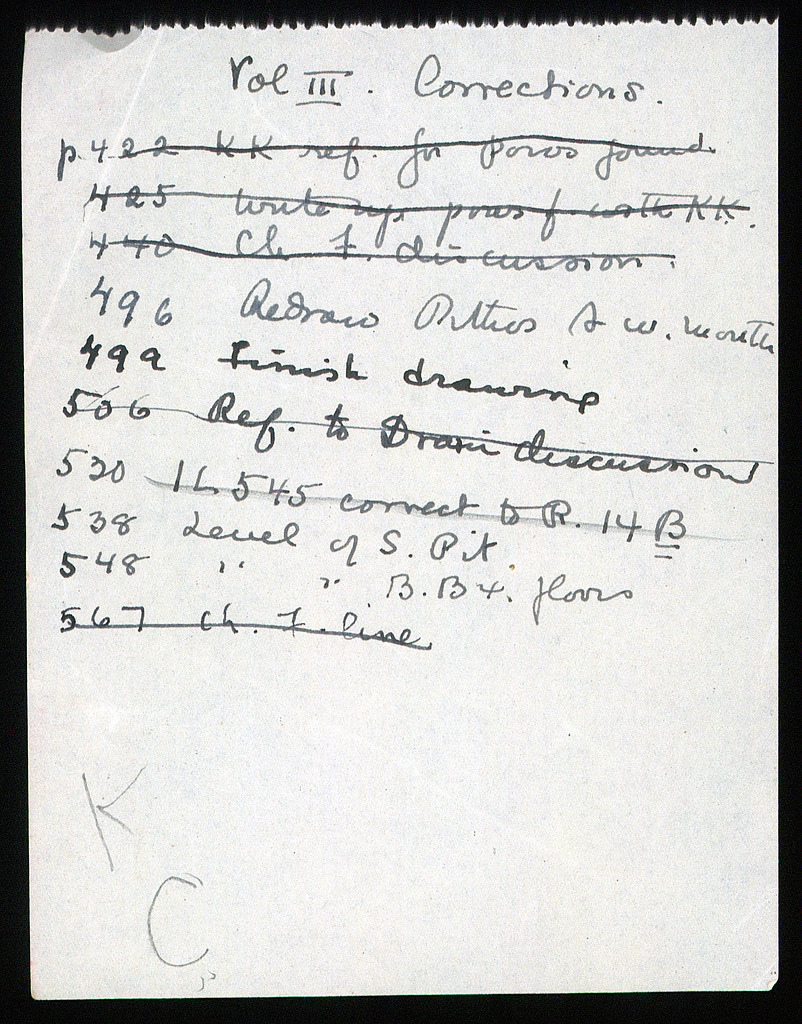 Vol III. Corrections.
p. 422 KK ref. for Poros found.
425 write up poros f. with KK.
440 Ch. 7. discussion.
496 Redraw Pithos A w. mouth
499 Finish drawing
506 Ref. to Drain discussion
530 IL 545 correct to R. 14 B
538 Level of S. Pit
548 " " B. B4. floors
567 Ch. 7. line
K
C